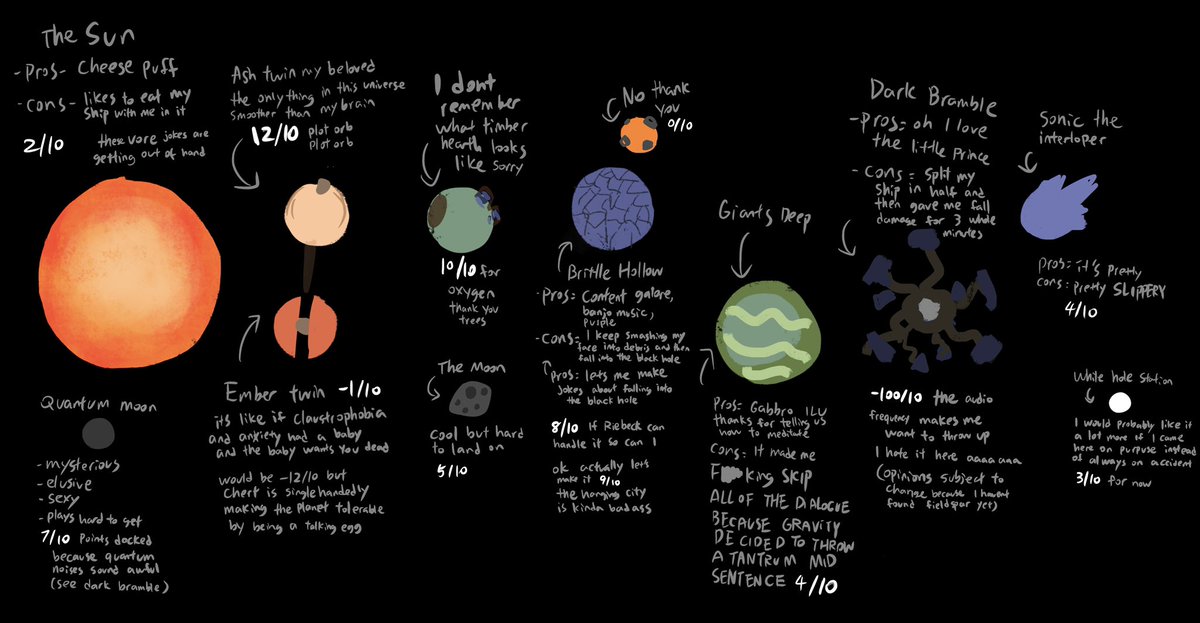 The Sun
-Pros- Cheese puff
-cons- likes to eat my
ship with me in it
2/10
these vore jokes are
getting out of hand
Ash twin my beloved
the only thing in this universe
smoother than my brain
12/10 plot orb
plot orb
I dont
remember
what timber
hearth looks
like sorry
10/10 for
oxygen
thank you
trees
No thank
you
0/10
Dark Bramble
-Pros= oh I love
the little Prince
-cons= Split my
ship in half and
then gave me fall
damage for 3 whole
minutes
Sonic the
interloper
Pros= it's pretty
cons: pretty SLIPPERY
4/10
Giants Deep
Brittle Hollow
-Pros= Content galore,
banjo music,
purple
-cons= I keep smashing my
face into debris and then
fall into the black hole
Pros: lets me make
jokes about falling into
the black hole
8/10 If Riebeck can
handle it so can I
ok actually lets
make it 9/10
the hanging city
is kinda badass
The Moon
Cool but hard
to land on
5/10
Ember twin -1/10
it's like if claustrophobia
and anxiety had a baby
and the baby wants you dead
would be -12/10 but
Chert is singlehandedly
making the planet tolerable
by being a talking egg
Quantum moon
-mysterious
-elusive
-sexy
-plays hard to get
7/10 Points docked
because quantum
noises sound awful
(see dark bramble)
Pros: Gabbro ILU
thanks for telling us
how to meditate
Cons: It made me
F king SKIP
ALL OF THE DIALOGUE
BECAUSE GRAVITY
DECIDED TO THROW
A TANTRUM MID
SENTENCE 4/10
-100/10 the audio
frequency makes me
want to throw up
I hate it here aaaaaaa
(opinions subject to
change because I havent
found feldspar yet)
White hole station
I would probably like it
a lot more if I came
here on purpose instead
of always on accident
3/10 for now